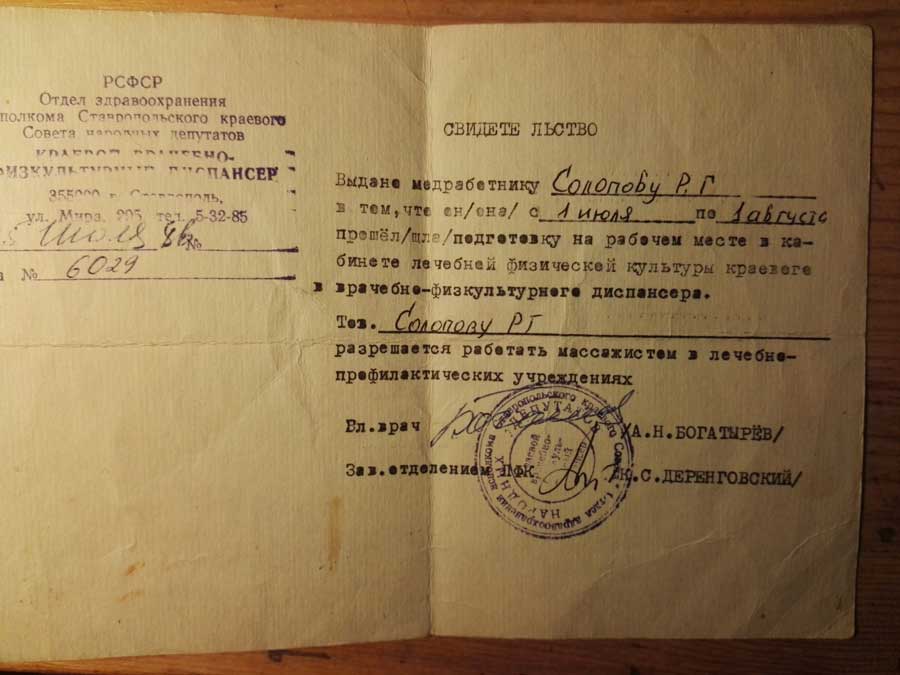 РСФСР
Отдел здравоохранения
полкома Ставропольского краевого
Совета народных депутатов
КРАЕВОЙ ВРАЧЕБНО-
ФИЗКУЛЬТУРНЫЙ ДИСПАНСЕР
355000 г. Ставрополь,
ул. Мира, 295 тел. 5-32-85
июля №
№ 6029
СВИДЕТЕ ЛЬСТВО
Выдано медработнику Солопову Р.Г
в том,что он/она/ с 1 июля по 1 августа
прошёл/шла/подготовку на рабочем месте в ка-
бинете лечебной физической культуры краевого
в врачебно-физкультурного диспансера.
Тов. Солопову Р Г
разрешается работать массажистом в лечебно-
профилактических учреждениях
Гл.врач /А.Н.БОГАТЫРЁВ/
Зав.отделением ЛФК /Ю.С.ДЕРЕНГОВСКИЙ/